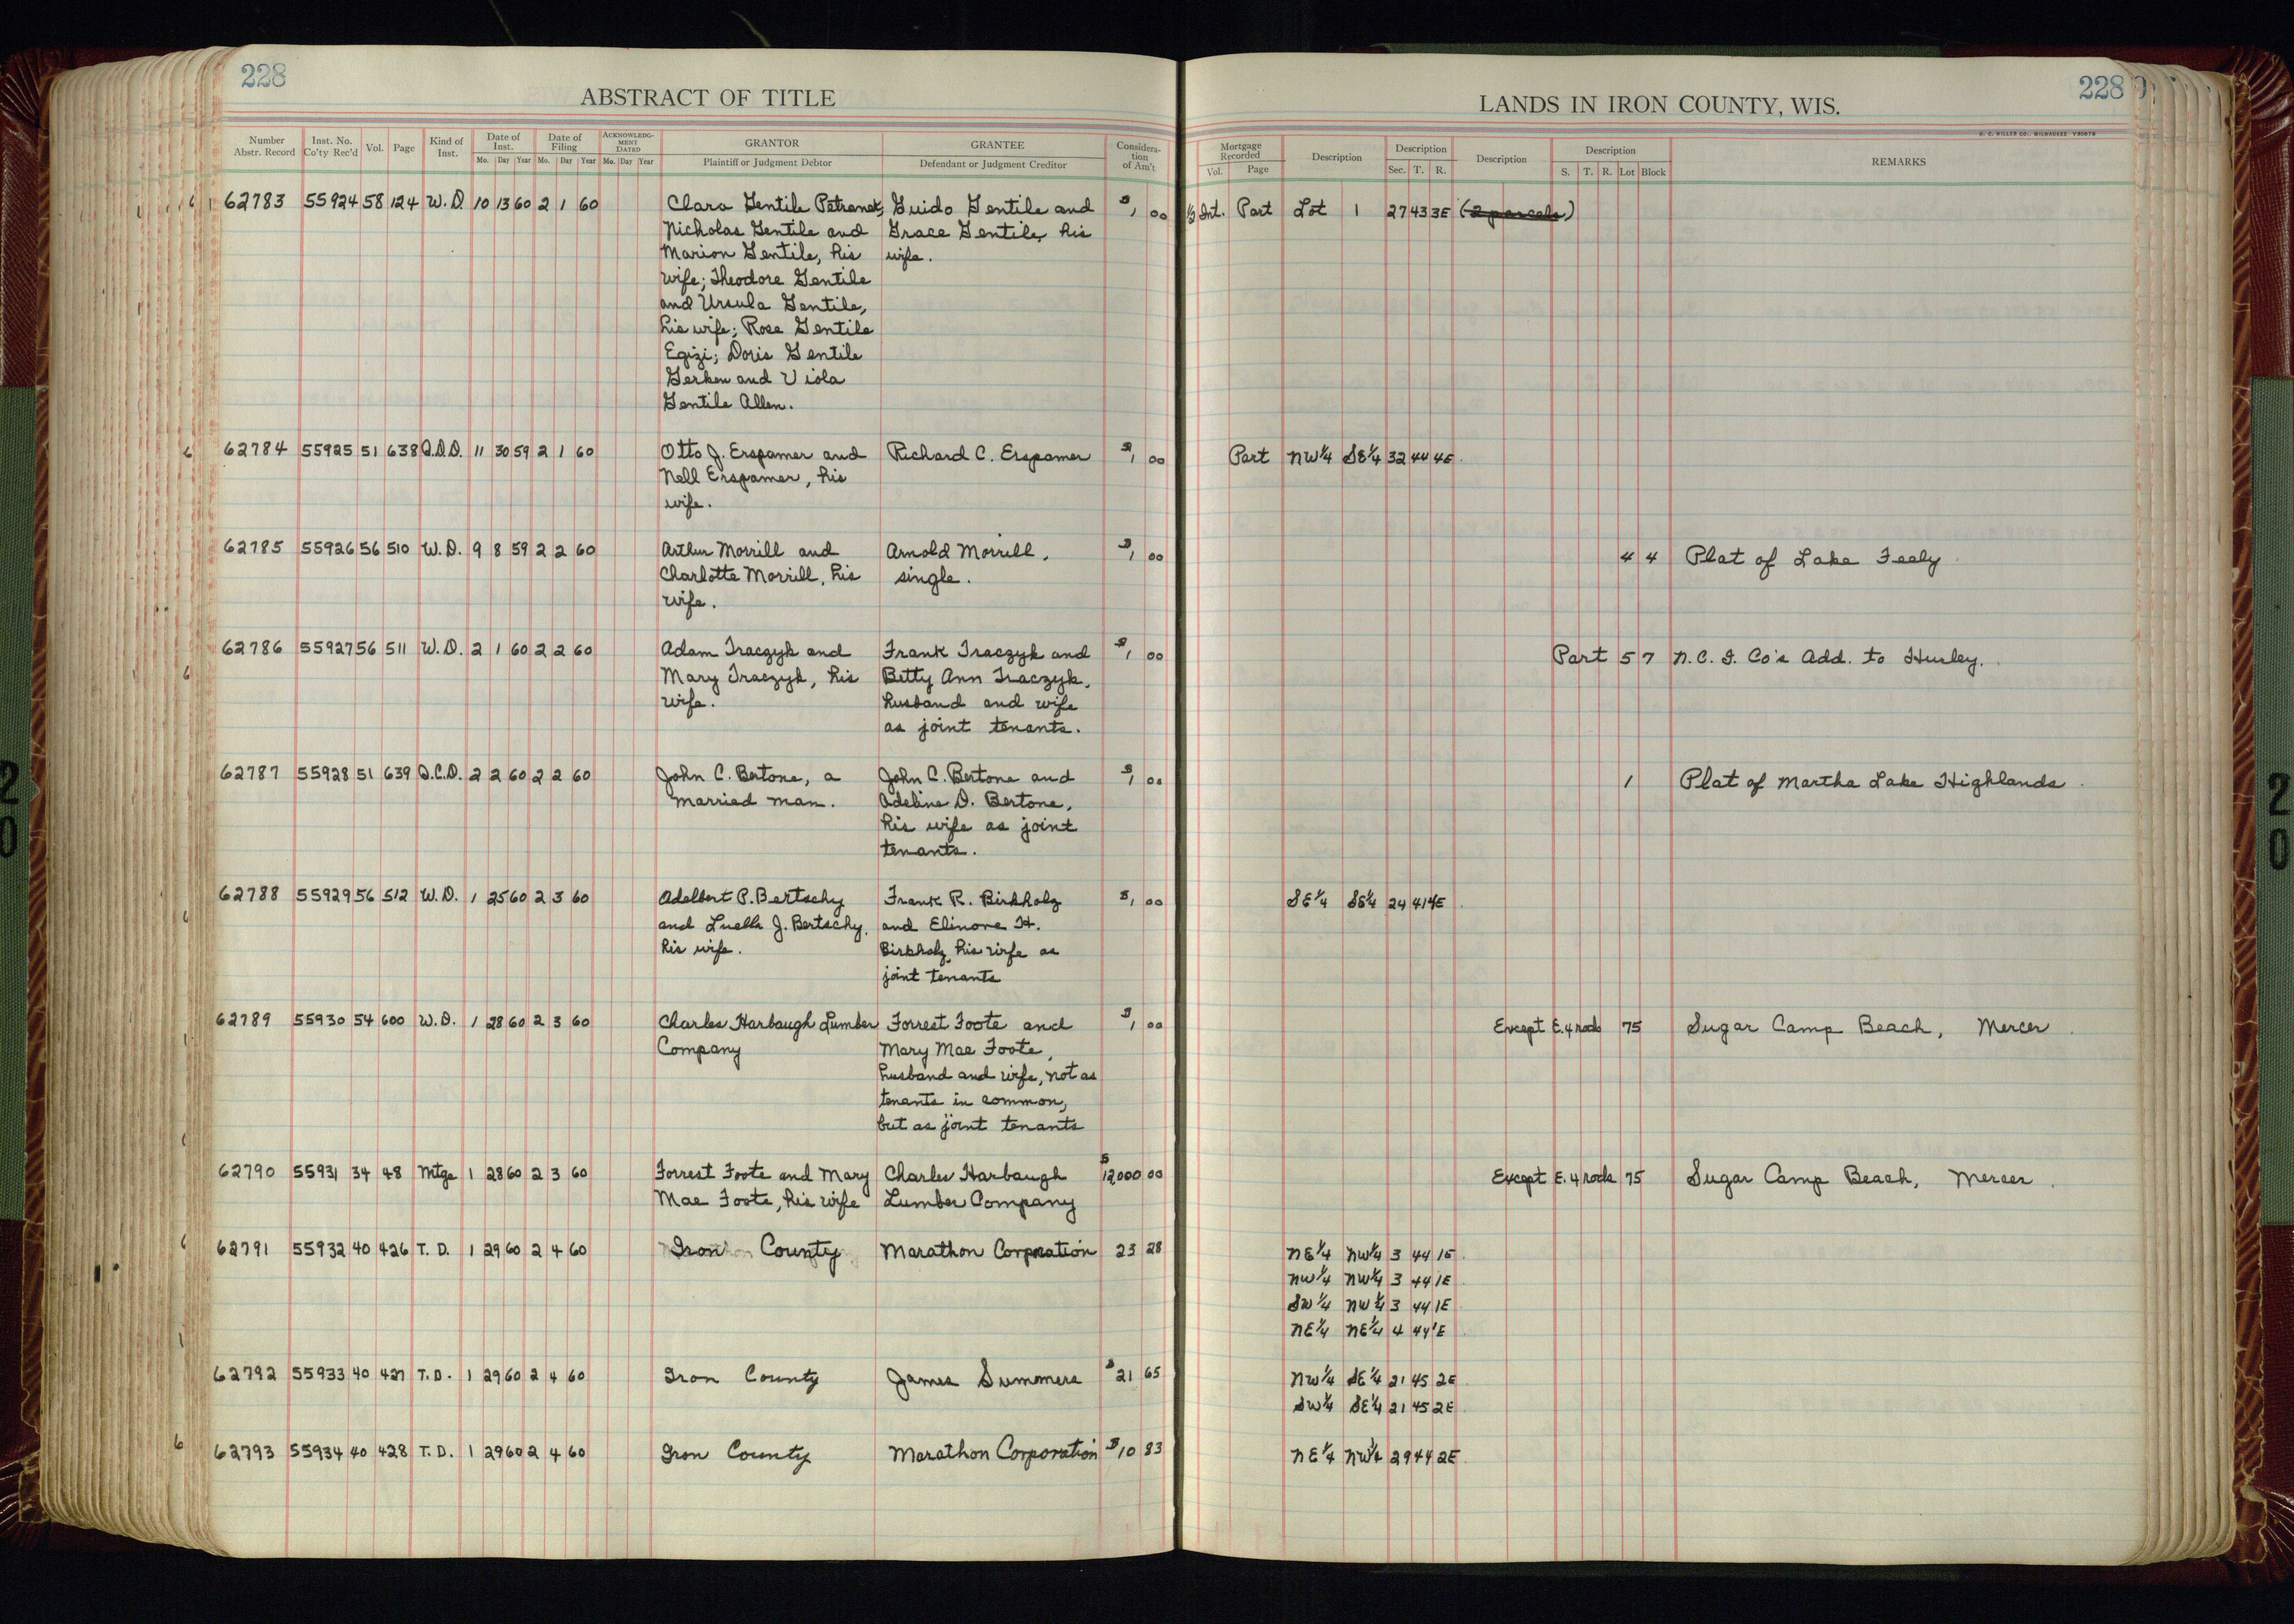 228
ABSTRACT OF TITLE
Number Abstr. Record Inst. No. Co'ty Rec'd Vol. Page Kind of Inst. Date of Inst. Mo. Day Year Date of Filing Mo. Day Year ACKNOWLEDGMENT DATED Mo. Day Year GRANTOR Plaintiff or Judgment Debtor GRANTEE Defendant or Judgment Creditor Consideration of Am't
62783 55924 58 124 W.D. 10 13 60 2 1 60 Clara Gentile Petranek; Guido Gentile and $1 00
Nicholas Gentile and Grace Gentile, his
Marion Gentile, his wife.
wife; Theodore Gentile
and Ursula Gentile,
his wife; Rose Gentile
Egizi; Doris Gentile
Gerken and Viola
Gentile Allen.
62784 55925 51 638 Q.D.D. 11 30 59 2 1 60 Otto J. Erspamer and Richard C. Erspamer $1 00
Nell Erspamer, his
wife.
62785 55926 56 510 W.D. 9 8 59 2 2 60 Arthur Morrill and Arnold Morrill, $1 00
Charlotte Morrill, his single.
wife.
62786 55927 56 511 W.D. 2 1 60 2 2 60 Adam Traczyk and Frank Traczyk and $1 00
Mary Traczyk, his Betty Ann Traczyk,
wife. husband and wife
as joint tenants.
62787 55928 51 639 Q.C.D. 2 2 60 2 2 60 John C. Bertone, a John C. Bertone and $1 00
married man. Adeline D. Bertone,
his wife as joint
tenants.
62788 55929 56 512 W.D. 1 25 60 2 3 60 Adelbert P. Bertschy Frank R. Birkholz $1 00
and Luella J. Bertschy, and Elinore H.
his wife. Birkholz, his wife as
joint tenants
62789 55930 54 600 W.D. 1 28 60 2 3 60 Charles Harbaugh Lumber Forrest Foote and $1 00
Company Mary Mae Foote,
husband and wife, not as
tenants in common,
but as joint tenants
62790 55931 34 48 Mtge 1 28 60 2 3 60 Forrest Foote and Mary Charles Harbaugh $12,000 00
Mae Foote, his wife Lumber Company
62791 55932 40 426 T.D. 1 29 60 2 4 60 Iron County Marathon Corporation 23 28
62792 55933 40 427 T.D. 1 29 60 2 4 60 Iron County James Summers $21 65
62793 55934 40 428 T.D. 1 29 60 2 4 60 Iron County Marathon Corporation $10 83
228
LANDS IN IRON COUNTY, WIS.
H. C. MILLER CO., MILWAUKEE
Mortgage Recorded Vol. Page Description Description Sec. T. R. Description Description S. T. R. Lot Block REMARKS
1/2 Int. Part Lot 1 27 43 3E (2 parcels)
Part NW1/4 SE1/4 32 44 4E.
4 4 Plat of Lake Feely
Part 5 7 N.C.I. Co's Add. to Hurley.
1 Plat of Martha Lake Highlands
SE1/4 SE1/4 24 41 4E
Except E. 4 rods 75 Sugar Camp Beach, Mercer
Except E. 4 rods 75 Sugar Camp Beach, Mercer.
NE1/4 NW1/4 3 44 1E
NW1/4 NW1/4 3 44 1E
SW1/4 NW1/4 3 44 1E
NE1/4 NE1/4 4 44 1E
NW1/4 SE1/4 21 45 2E
SW1/4 SE1/4 21 45 2E
NE1/4 NW1/4 29 44 2E
20
20